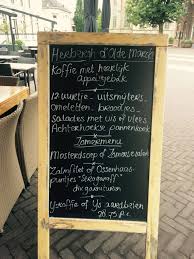 Herbergh d'Olde Marck
Koffie met heerlijk
Appelgebak
12 uurtje - uitsmijters -
omeletten - broodjes -
Salades met vis of vlees
Achterhoekse pannenkoek
Zomermenu
Mosterdsoep of Zomersalade
Zalmfilet of Ossenhaas-
puntjes "Stroganoff"
div garnituren
IJskoffie of IJs aardbeien
p.p.